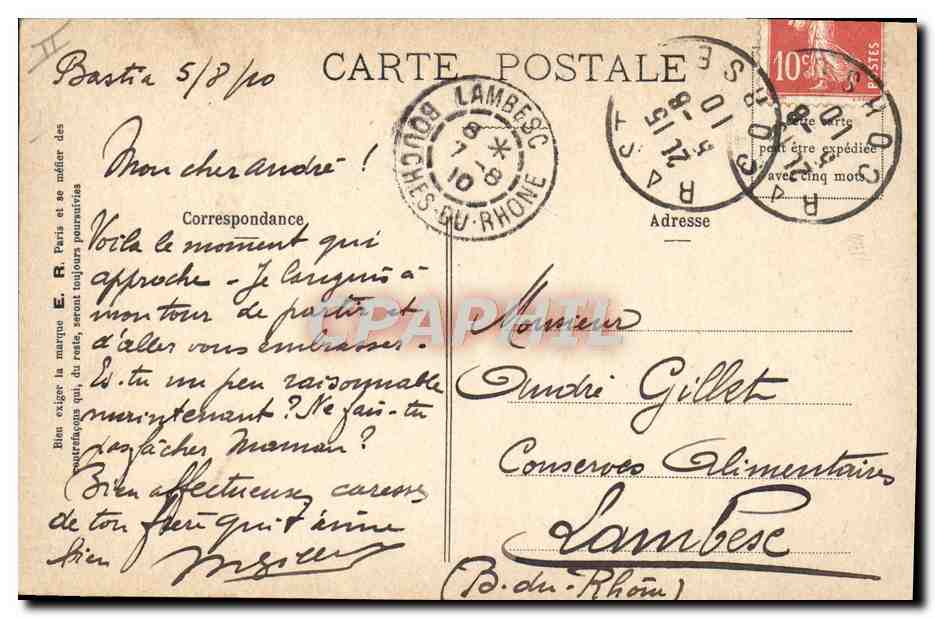 II
Bastia 5/8/10
CARTE POSTALE
LAMBESC
BOUCHES-DU-RHONE
8 *
7 -8
10
CORSE
5 -8
10
10c
POSTES
Cette carte
peut être expédiée
avec cinq mots
Bien exiger la marque E. R. Paris et se méfier des
contrefaçons qui, du reste, seront toujours poursuivies
Mon cher andré !
Correspondance
Adresse
Voila le moment qui
approche - Je
mon tour de partir et
d'aller vous embrasser -
Es-tu un peu raisonnable
maintenant ? Ne fais-tu
pas fâcher Maman ?
Bien affectueuses caresses
de ton frère qui t'aime
bien
Monsieur
André Gillet
Conserves Alimentaires
Lambesc
(B.-du-Rhône)
CPAPHIL